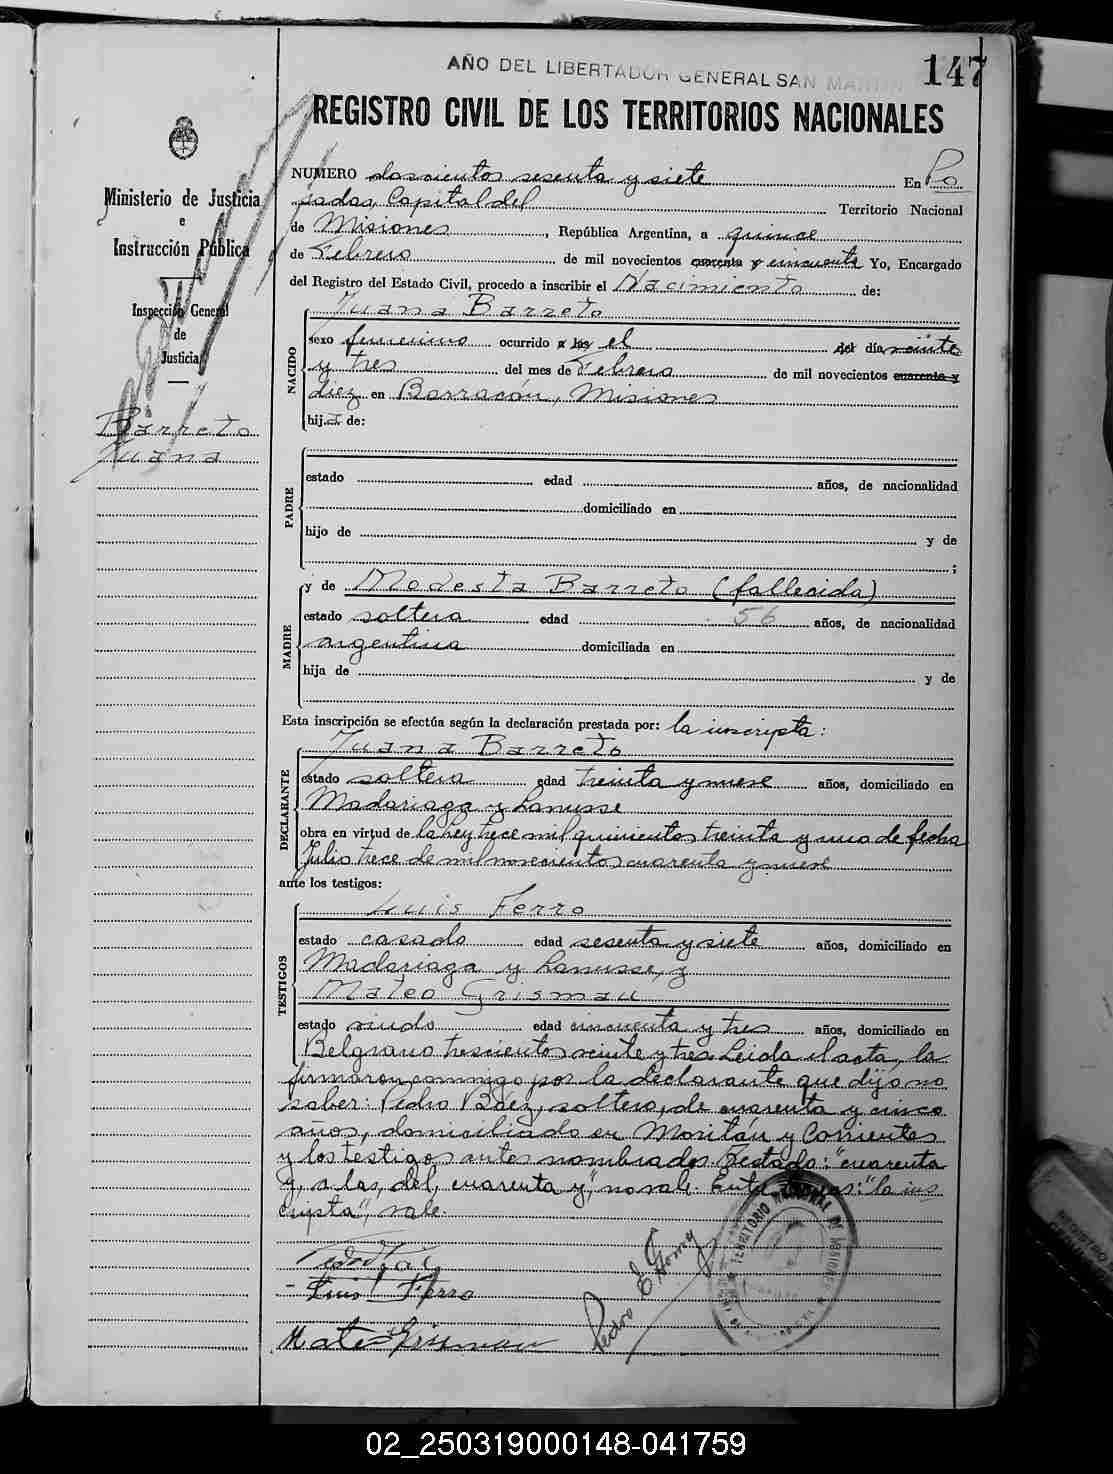 AÑO DEL LIBERTADOR GENERAL SAN MARTIN
147
REGISTRO CIVIL DE LOS TERRITORIOS NACIONALES
Ministerio de Justicia
e
Instrucción Pública
Inspección General
de
Justicia
Barreto
Juana
NUMERO doscientos sesenta y siete En Po
sadas, Capital del Territorio Nacional
de Misiones, República Argentina, a quince
de Febrero de mil novecientos cuarenta y cincuenta Yo, Encargado
del Registro del Estado Civil, procedo a inscribir el Nacimiento de:
NACIDO
Juana Barreto
sexo femenino ocurrido a las el del día veinte
y tres del mes de Febrero de mil novecientos cuarenta y
diez en Barracón, Misiones
hija de:
PADRE
estado edad años, de nacionalidad
domiciliado en
hijo de y de
;
MADRE
y de Modesta Barreto (fallecida)
estado soltera edad 56 años, de nacionalidad
argentina domiciliada en
hija de y de
Esta inscripción se efectúa según la declaración prestada por: la inscripta:
DECLARANTE
Juana Barreto
estado soltera edad treinta y nueve años, domiciliado en
Madariaga y Lanusse
obra en virtud de la Ley trece mil quinientos treinta y uno de fecha
Julio trece de mil novecientos cuarenta y nueve
ante los testigos:
TESTIGOS
Luis Ferro
estado casado edad sesenta y siete años, domiciliado en
Madariaga y Lanusse, y
Mateo Grismau
estado viudo edad cincuenta y tres años, domiciliado en
Belgrano trescientos veinte y tres. Leida el acta, la
firmaron conmigo por la declarante que dijo no
saber: Pedro Báez, soltero, de cuarenta y cinco
años, domiciliado en Moritán y Corrientes
y los testigos antes nombrados. Testado: "cuarenta
y, a las, del, cuarenta y", no vale. Entre lineas: "la ins
cripta", vale.
Luis Ferro
Mateo Grismau
Pedro E. Gomez
TERRITORIO NACIONAL DE MISIONES
02_250319000148-041759